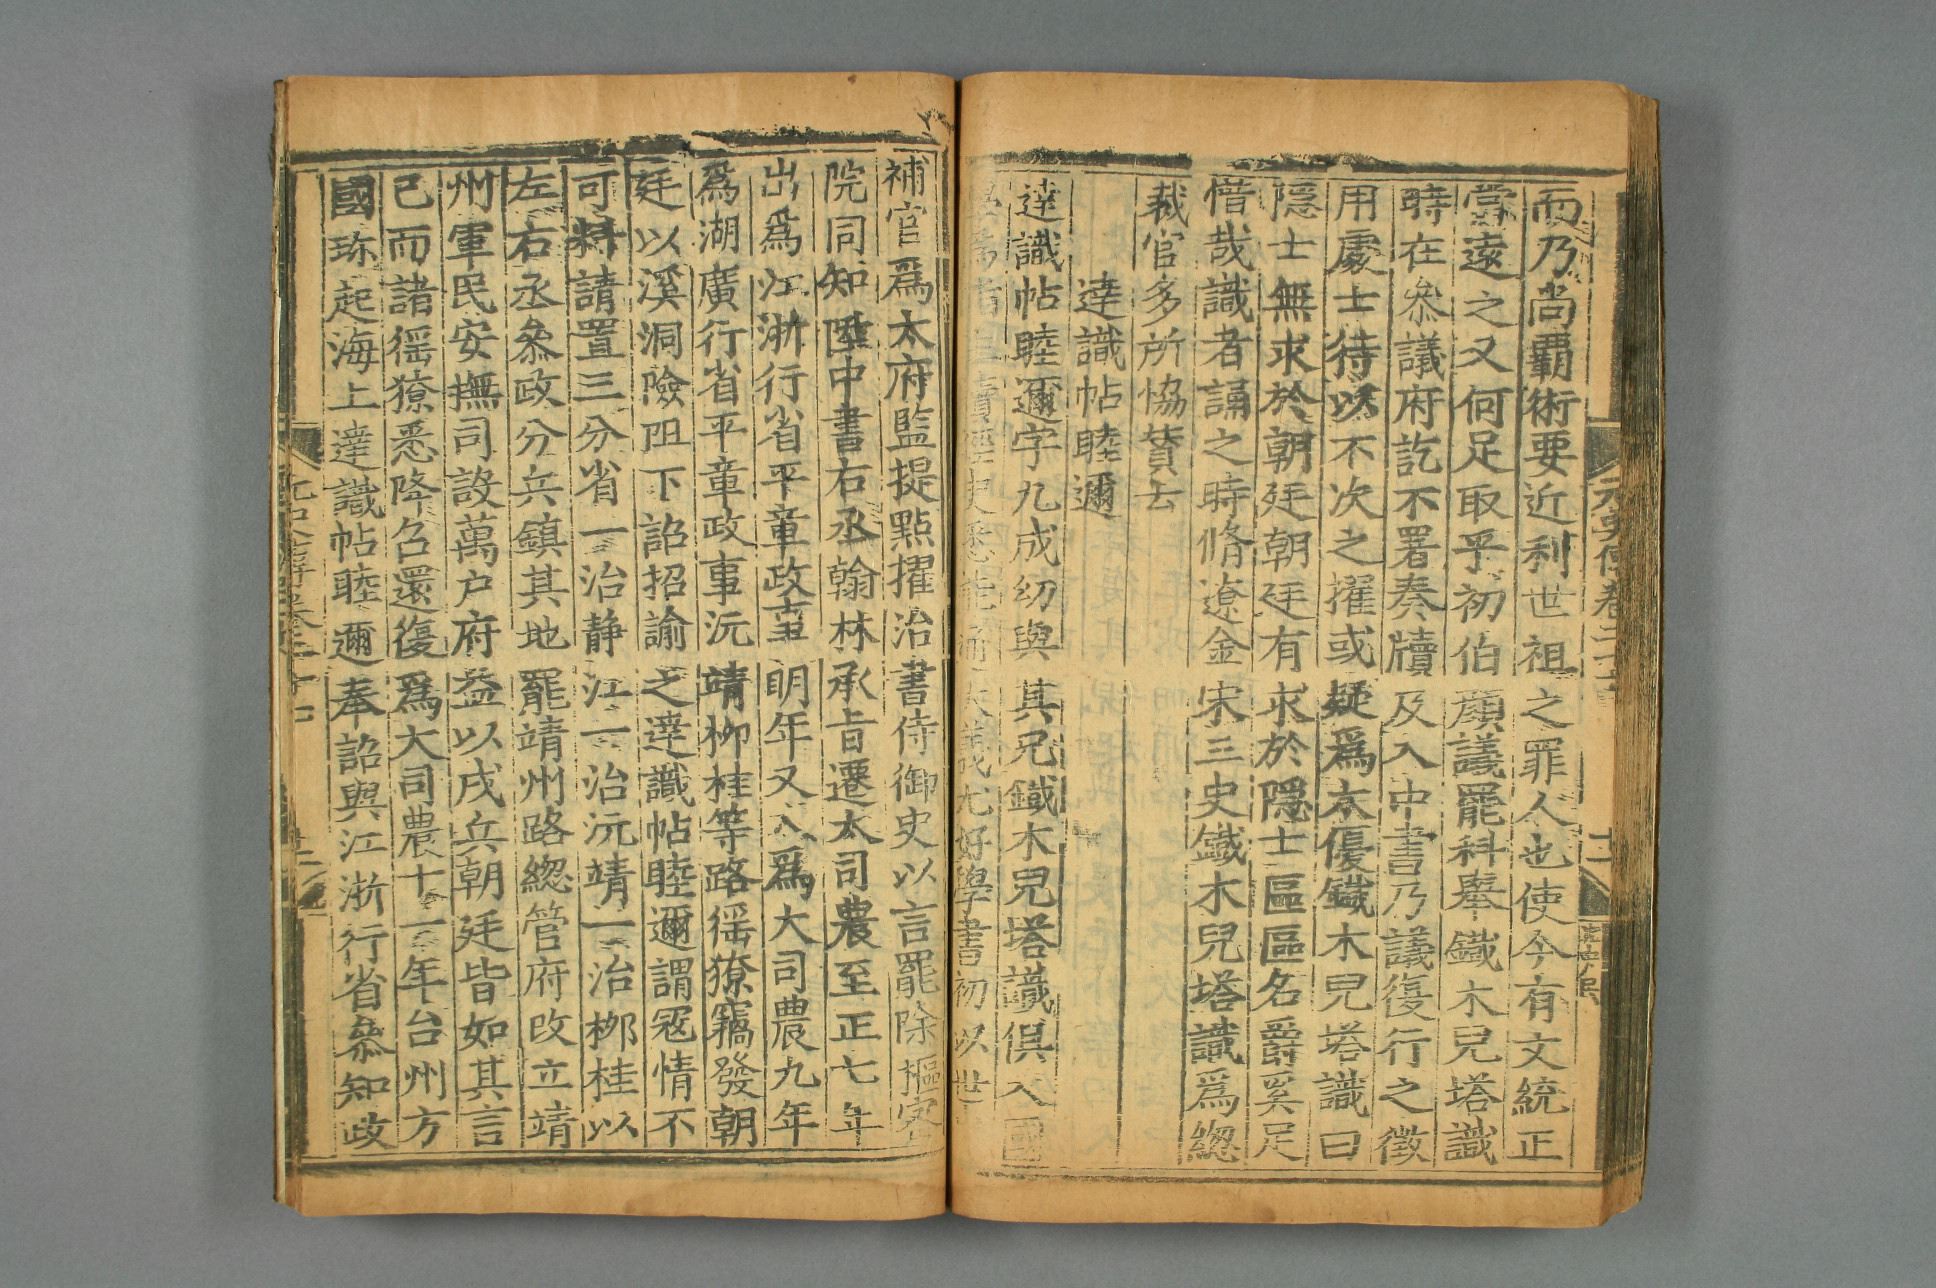 而乃尚覇術要近利世祖之罪人也使今有文統正
當遠之又何足取乎初伯顔議罷科舉鐵木兒塔識
時在叅議府訖不署奏牘及入中書乃議復行之徵
用處士待以不次之擢或疑爲太優鐵木兒塔識曰
隱士無求於朝廷朝廷有求於隱士區區名爵奚足
惜哉識者誦之時脩遼金宋三史鐵木兒塔識爲緫
裁官多所恊賛云
達識帖睦邇
達識帖睦邇字九成幼與其兄鐵木兒塔識俱入國
學爲諸生讀經史悉能通大義尤好學書初以世
補官爲太府監提點擢治書侍御史以言罷除樞密
院同知陞中書右丞翰林承旨遷太司農至正七年
出爲江浙行省平章政事明年又入爲大司農九年
爲湖廣行省平章政事沅靖柳桂等路徭獠竊發朝
廷以溪洞險阻下詔招諭之達識帖睦邇謂冦情不
可料請置三分省一治静江一治沅靖一治桞桂以
左右丞叅政分兵鎮其地罷靖州路緫管府改立靖
州軍民安撫司設萬户府益以戍兵朝廷皆如其言
已而諸徭獠悉降召還復爲大司農十一年台州方
國珎起海上達識帖睦邇奉詔與江浙行省叅知政
元史傳卷二十
十一